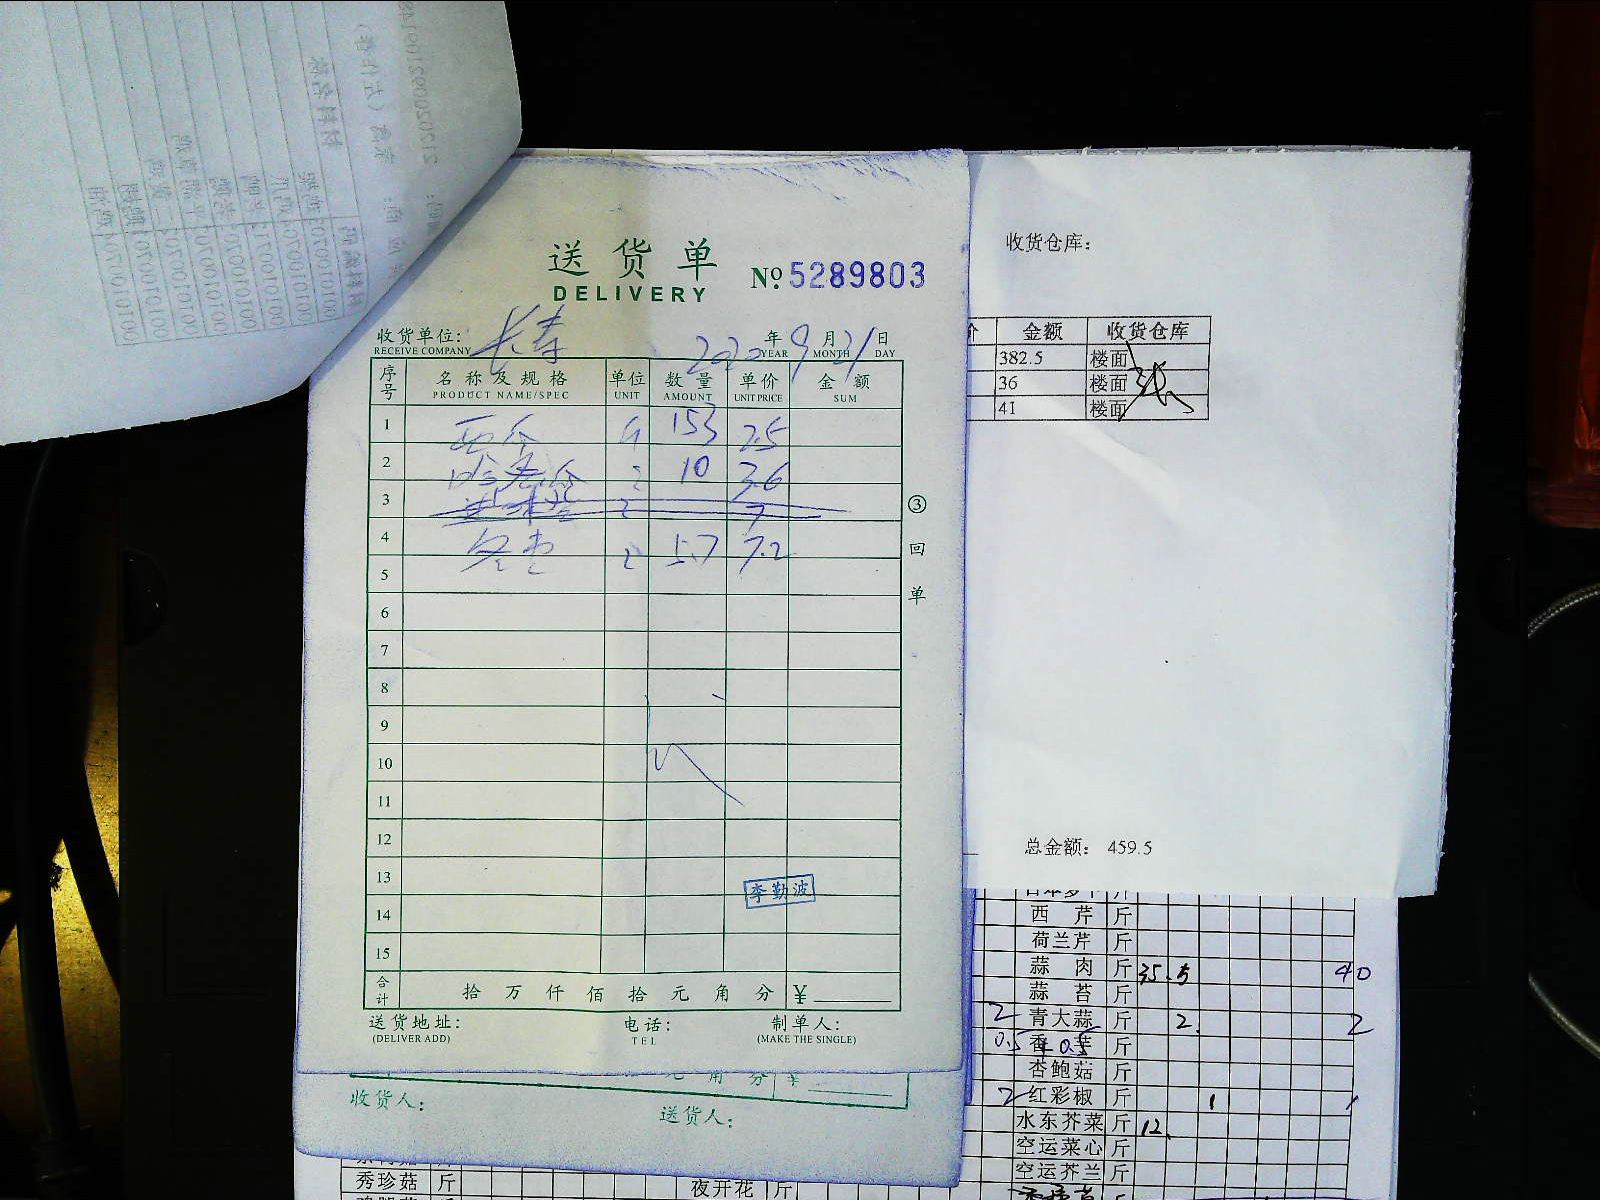 送货单
DELIVERY
№ 5289803
收货单位: 长寿
RECEIVE COMPANY
2020 年 9 月 21 日
YEAR MONTH DAY
序号 名称及规格 单位 数量 单价 金额
PRODUCT NAME/SPEC UNIT AMOUNT UNIT PRICE SUM
1 西瓜 斤 153 2.5
2 哈密瓜 10 3.6
3 7
4 冬枣 5.7 7.2
5
6
7
8
9
10
11
12
13
14
15
李勤波
合计 拾 万 仟 佰 拾 元 角 分 ¥
送货地址: 电话: 制单人:
(DELIVER ADD) TEL (MAKE THE SINGLE)
③ 回单
元 角 分 ¥
收货人: 送货人:
收货仓库:
价 金额 收货仓库
382.5 楼面
36 楼面
41 楼面
总金额: 459.5
西芹 斤
荷兰芹 斤
蒜肉 斤 35.5 40
蒜苔 斤
2 青大蒜 斤 2. 2
0.5 斤
杏鲍菇 斤
2 红彩椒 斤 1 1
水东芥菜 斤 12.
空运菜心 斤
空运芥兰 斤
秀珍菇 斤 夜开花 斤